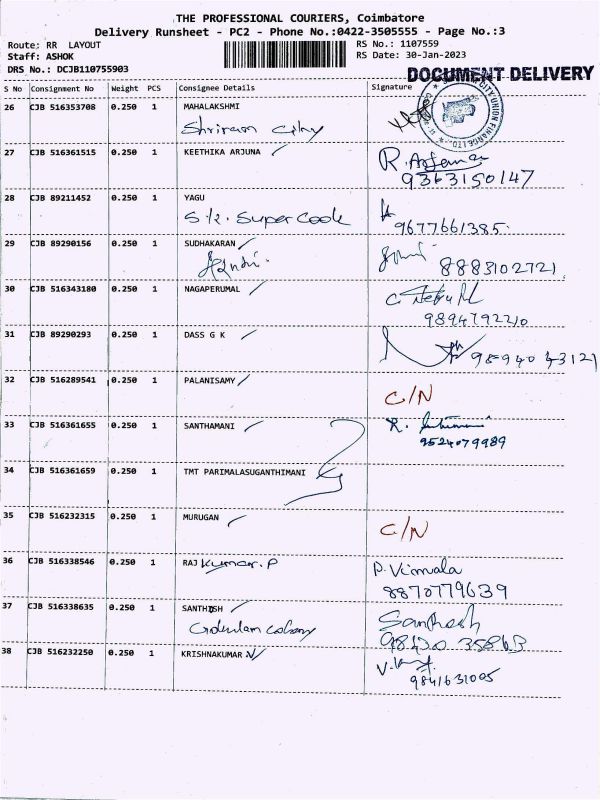 THE PROFESSIONAL COURIERS, Coimbatore
Delivery Runsheet - PC2 - Phone No.:0422-3505555 - Page No.:3
Route: RR LAYOUT RS No.: 1107559
Staff: ASHOK RS Date: 30-Jan-2023
DRS No.: DCJB110755903 DOCUMENT DELIVERY
S No Consignment No Weight PCS Consignee Details Signature
26 CJB 516353708 0.250 1 MAHALAKSHMI
Shriram City CITY UNION FINANCE LTD.
27 CJB 516361515 0.250 1 KEETHIKA ARJUNA R.
9363150147
28 CJB 89211452 0.250 1 YAGU
S.K. Super Cook 9677661385
29 CJB 89290156 0.250 1 SUDHAKARAN
8883102721
30 CJB 516343180 0.250 1 NAGAPERUMAL C.
9894792210
31 CJB 89290293 0.250 1 DASS G K
9894043121
32 CJB 516289541 0.250 1 PALANISAMY
C/N
33 CJB 516361655 0.250 1 SANTHAMANI R.
9524079989
34 CJB 516361659 0.250 1 TMT PARIMALASUGANTHIMANI
35 CJB 516232315 0.250 1 MURUGAN
C/N
36 CJB 516338546 0.250 1 RAJ Kumar.P P. Vimala
8870779639
37 CJB 516338635 0.250 1 SANTHOSH Santhosh
colony 98420 35863
38 CJB 516232250 0.250 1 KRISHNAKUMAR V
V.
9841631005